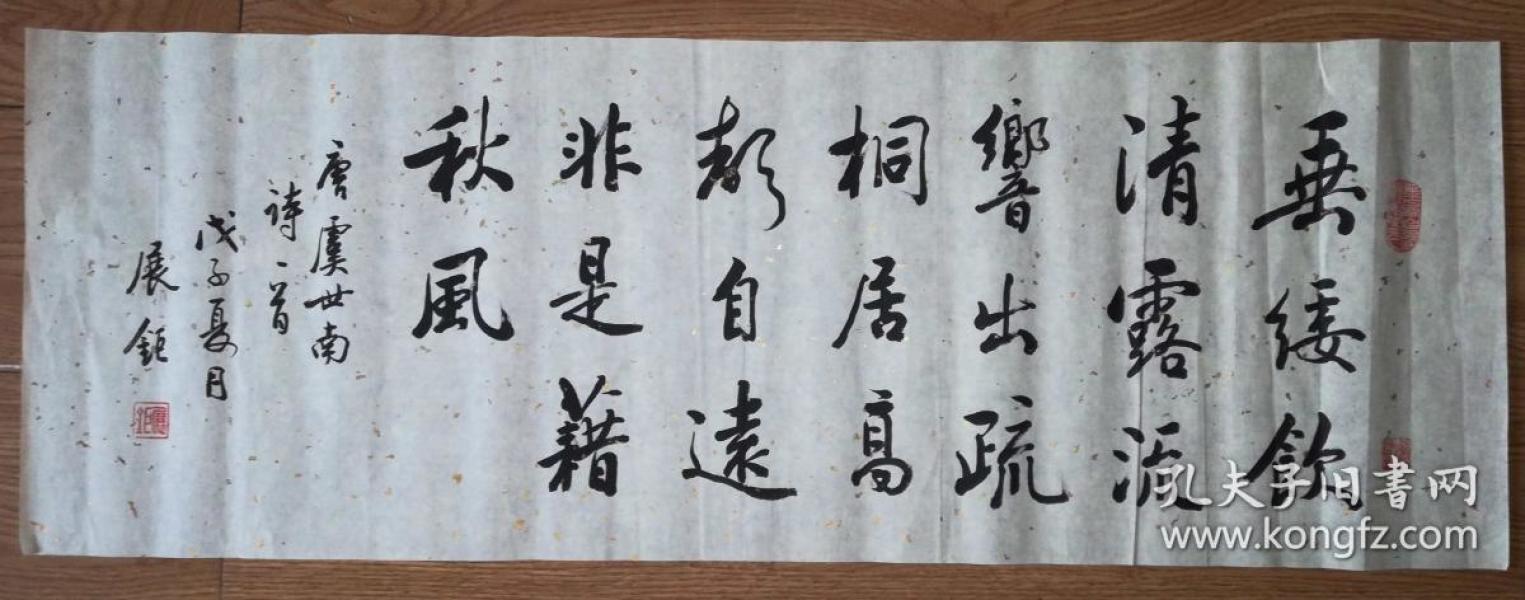 垂緌飲
清露流
響出疏
桐居高
聲自遠
非是藉
秋風
唐虞世南
詩一首
戊子夏月
展鉅
孔夫子旧書网
www.kongfz.com